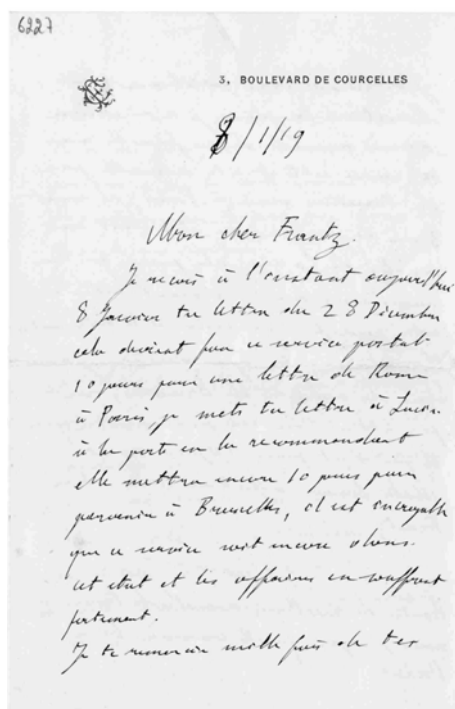 6227
3, BOULEVARD DE COURCELLES
8/1/19
Mon cher Frantz.
Je reçois à l'instant aujourd'hui
8 Janvier ta lettre du 28 Décembre
cela devient fou ce service postal
10 jours pour une lettre de Rome
à Paris, je mets ta lettre à Lucien
à la poste en la recommandant
elle mettra encore 10 jours pour
parvenir à Bruxelles, il est incroyable
que ce service soit encore dans
cet état et les affaires en souffrent
fortement.
Je te remercie mille fois de tes